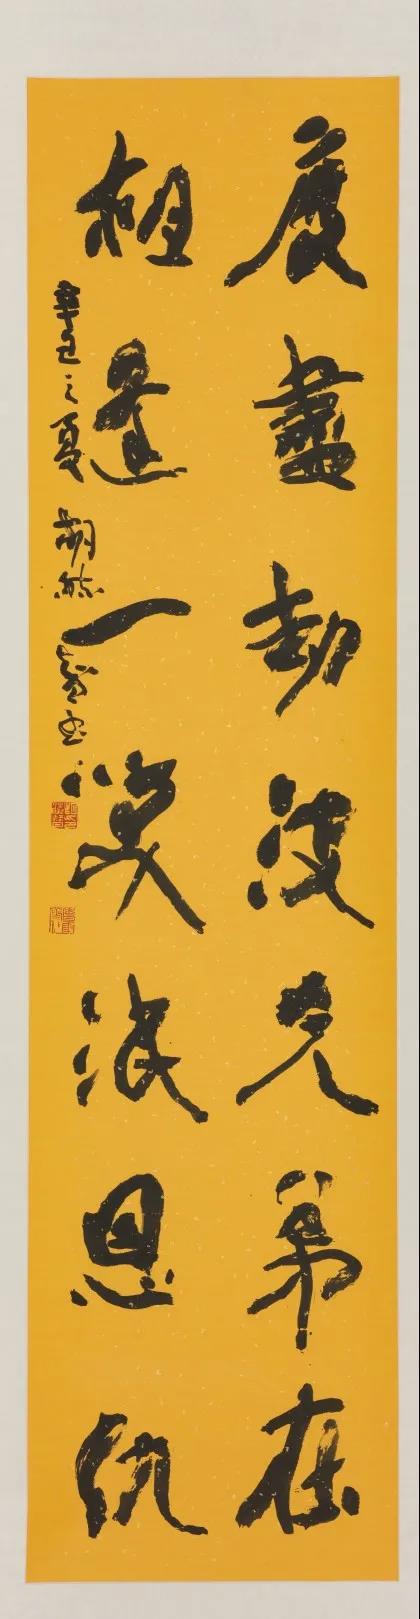 度盡劫波兄弟在
相逢一笑泯恩仇
辛丑之夏 胡